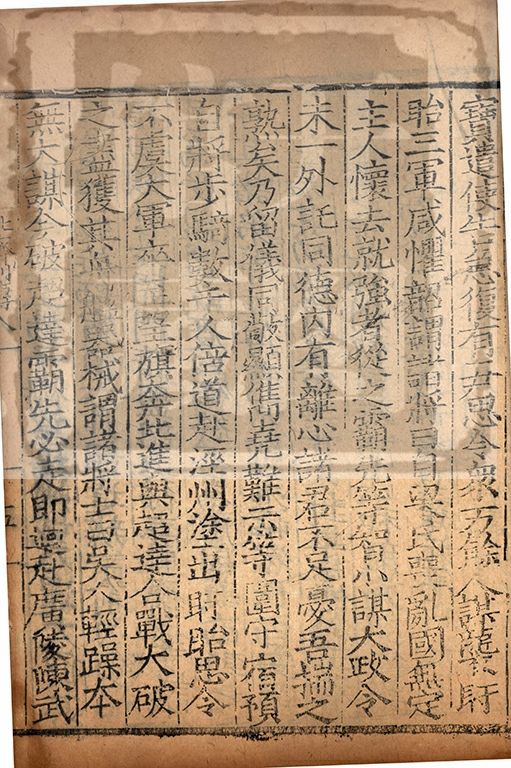 寶遣使告急復有尹思令衆万餘人謀襲盱
眙三軍咸懼韶謂諸將曰自梁氏喪亂國無定
主人懷去就強者從之霸先等智小謀大政令
未一外託同德內有離心諸君不足憂吾揣之
熟矣乃留儀同敬顯儁堯難宗等圍守宿預
自將步騎數千人倍道赴涇州塗出盱眙思令
不虞大軍卒至望旗奔北進與超達合戰大破
之盡獲其舟艦器械謂諸將士曰吳人輕躁本
無大謀今破超達霸先必走即還赴廣陵陳武